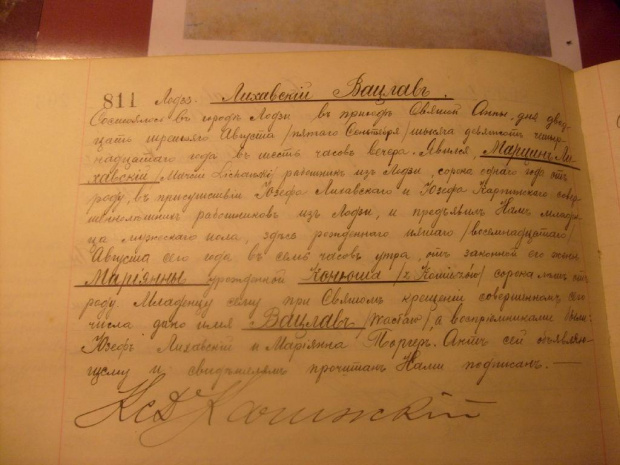 811 Лодзь. Лихавскій Вацлавъ.
Состоялось въ городѣ Лодзи въ приходѣ Святой Анны, дня двад-
цать третьяго Августа /пятаго Сентября/ тысяча девятьсотъ четыр-
надцатаго года въ шесть часовъ вечера. Явился, Марцинъ Ли-
хавскій /Marcin Lichawski/ работникъ изъ Лодзи, сорока одного лѣтъ отъ
роду, въ присутствіи Юзефа Лихавскаго и Юзефа совер-
шеннолѣтнихъ работниковъ изъ Лодзи, и предъявилъ Намъ младен-
ца мужескаго пола, здѣсь рожденнаго пятаго /восемнадцатаго/
Августа сего года въ семь часовъ утра, отъ законной его жены
Маріянны урожденной сорока лѣтъ отъ
роду. Младенцу сему при Святомъ крещеніи совершенномъ сего
числа дано имя Вацлавъ, а воспріемниками были
Юзефъ Лихавскій и Маріянна Актъ сей объявля-
ющему и свидѣтелямъ прочитанъ Нами подписанъ.